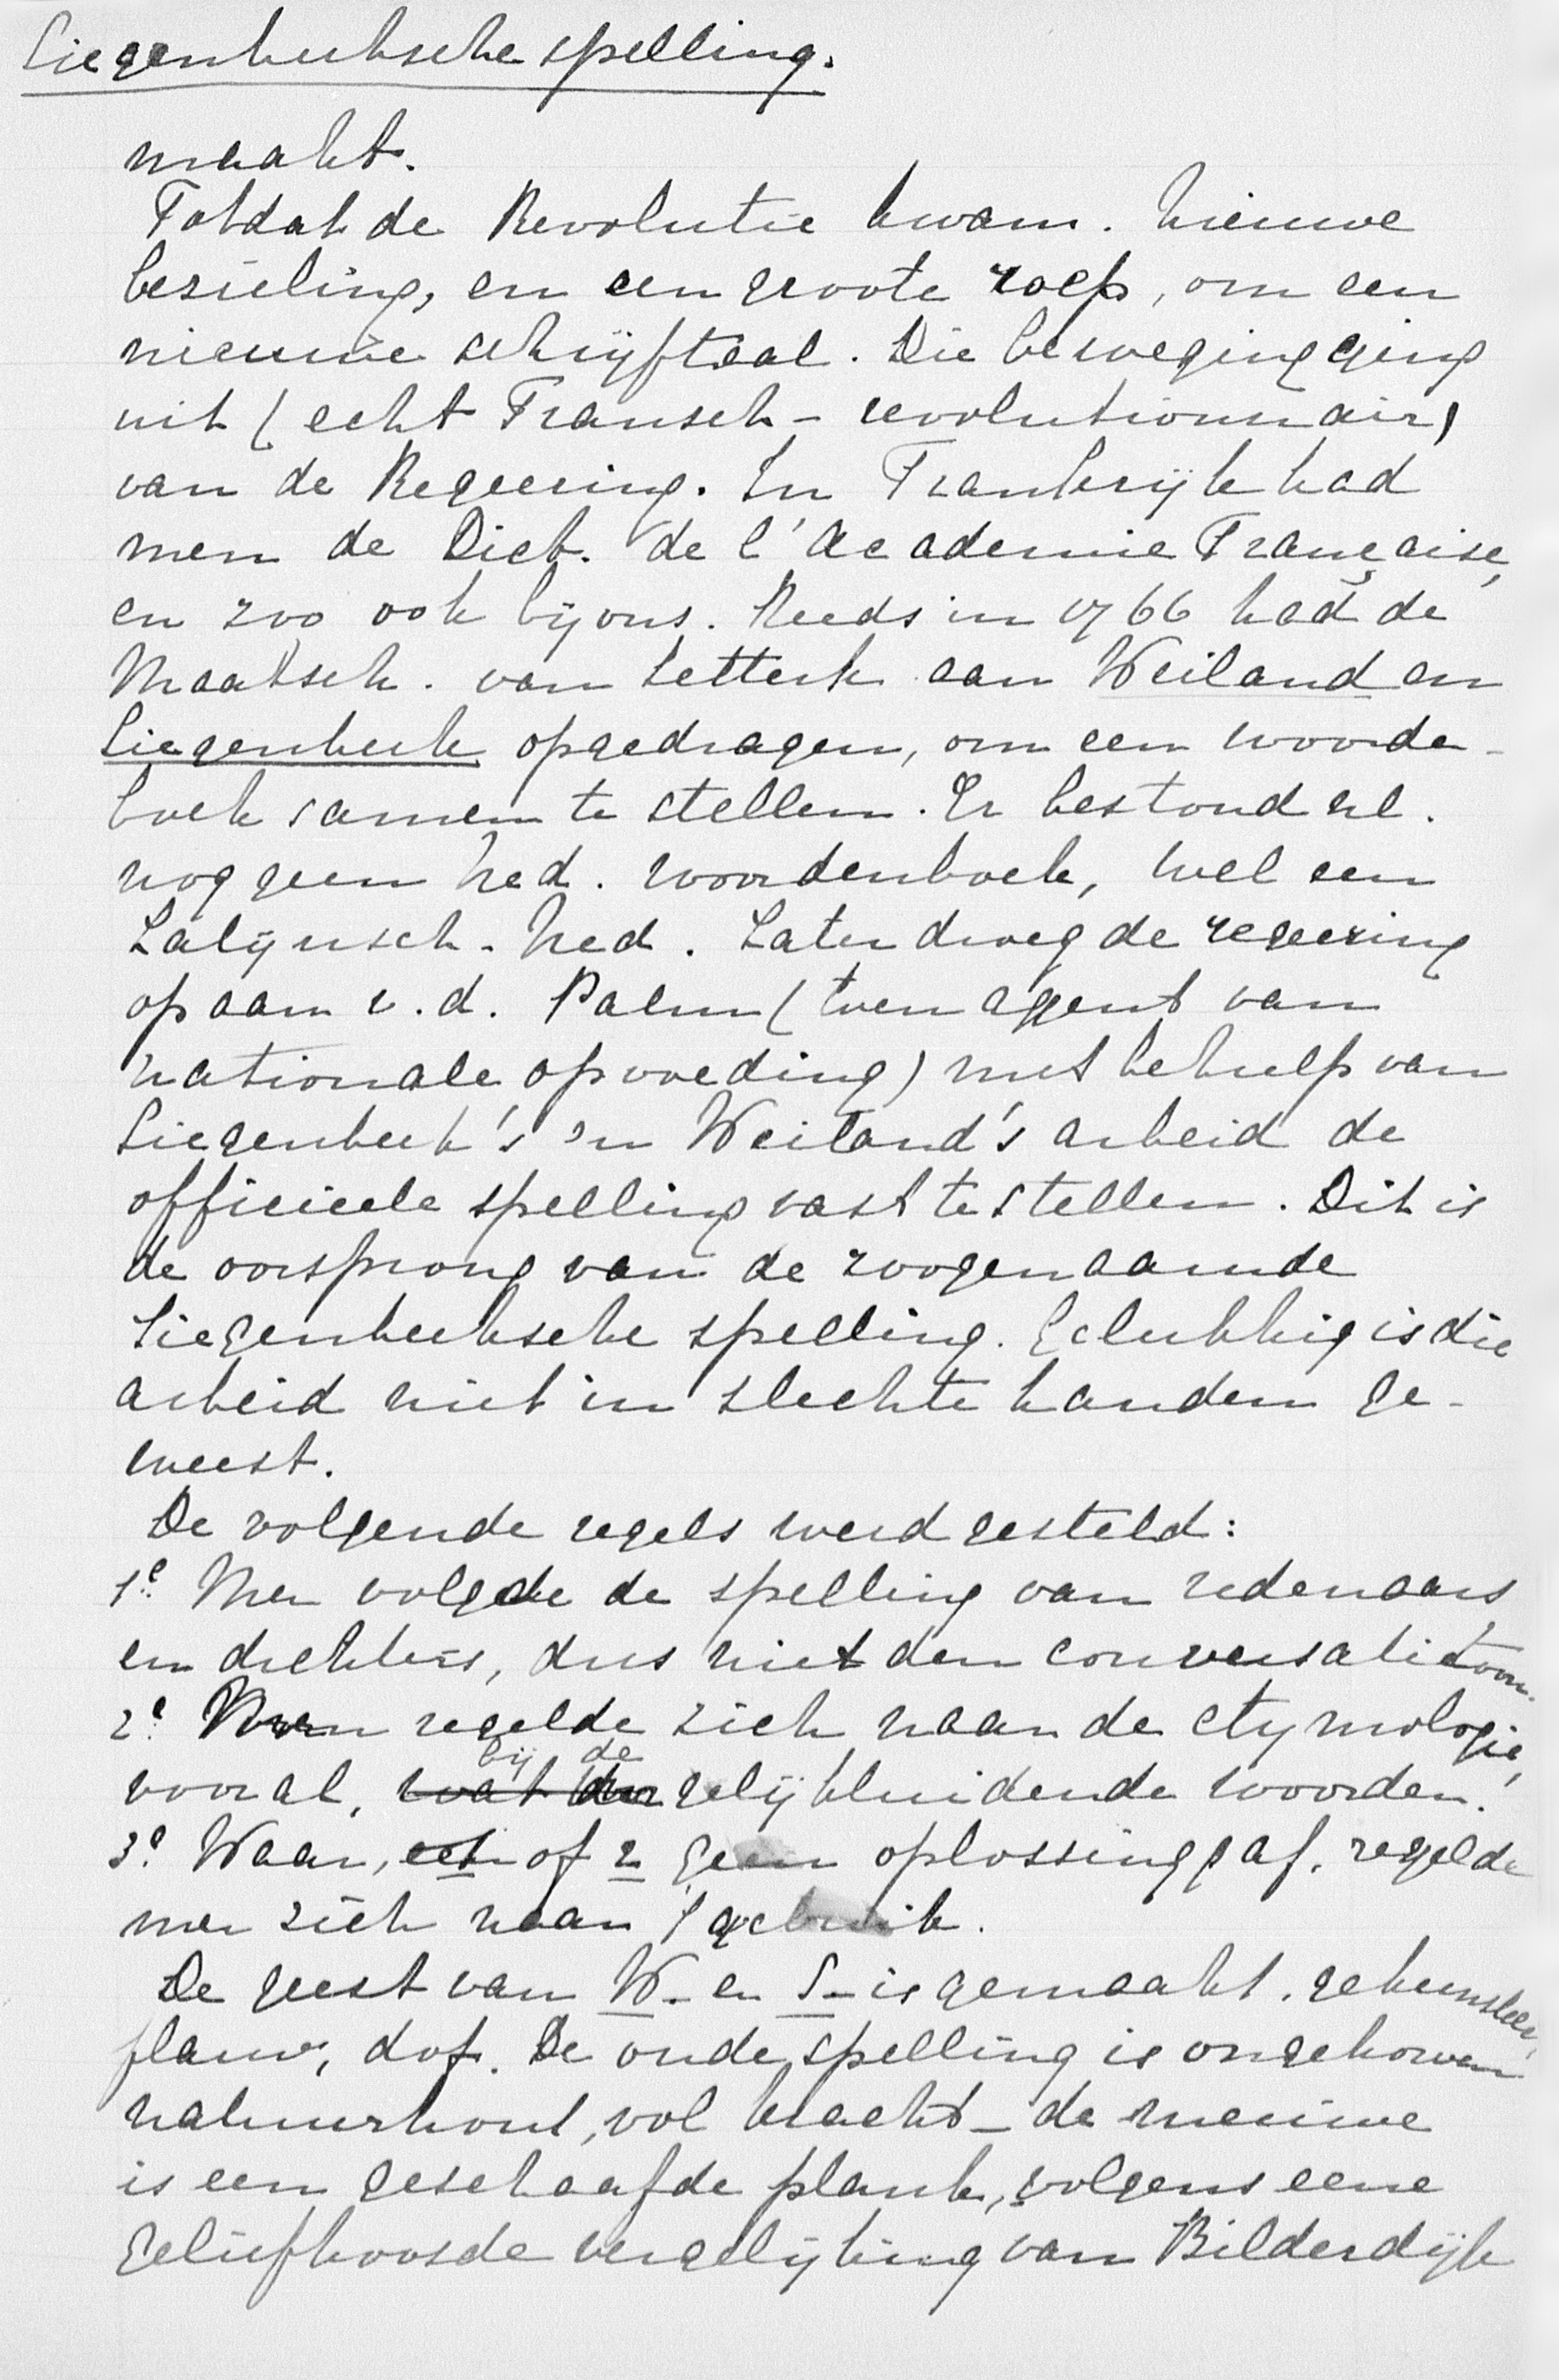 Siegenbeeksche spelling.
maakt.
Totdat de Revolutie kwam. Nieuwe
bezieling, en een groote roep, om een
nieuwe schrijftaal. Die beweging ging
uit (echt Fransch-revolutionnair)
van de Regeering. In Frankrijk had
men de Dict. de l'Academie Française,
en zoo ook bij ons. Reeds in 1766 had de
Maatsch. van Letterk. aan Weiland en
Siegenbeek opgedragen, om een woorden-
boek samen te stellen. Er bestond nl.
nog geen Ned. woordenboek, wel een
Latijnsch-Ned. Later droeg de regeering
op aan v.d. Palm (toen agent van
nationale opvoeding) met behulp van
Siegenbeek's 'n Weiland's arbeid de
officieele spelling vast te stellen. Dit is
de oorsprong van de zoogenaamde
Siegenbeeksche spelling. Gelukkig is die
arbeid niet in slechte handen ge-
weest.
De volgende regels werd gesteld:
1e. Men volgde de spelling van redenaars
en dichters, dus niet den conversatietoon.
2e. Men regelde zich naar de etymologie,
vooral, wat der bij de gelijkluidende woorden.
3e. Waar, een of 2 geen oplossing gaf, regelde
men zich naar 't gebruik.
De geest van W. en S. is gemaakt, gekunsteld,
flauw, dof. De oude spelling is ongehouwen
natuurhout, vol kracht - de nieuwe
is een geschaafde plank, volgens eene
geliefkoosde vergelijking van Bilderdijk